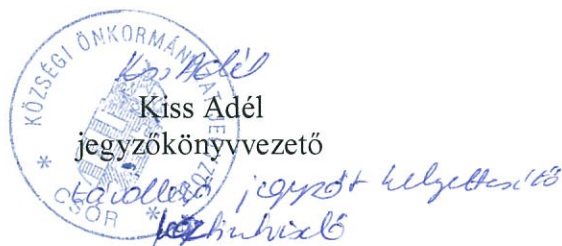 KÖZSÉGI ÖNKORMÁNYZAT JEGYZŐJE
* CSÓR *
Kiss Adél
Kiss Adél
jegyzőkönyvvezető
távollévő jegyzőt helyettesítő
köztisztviselő